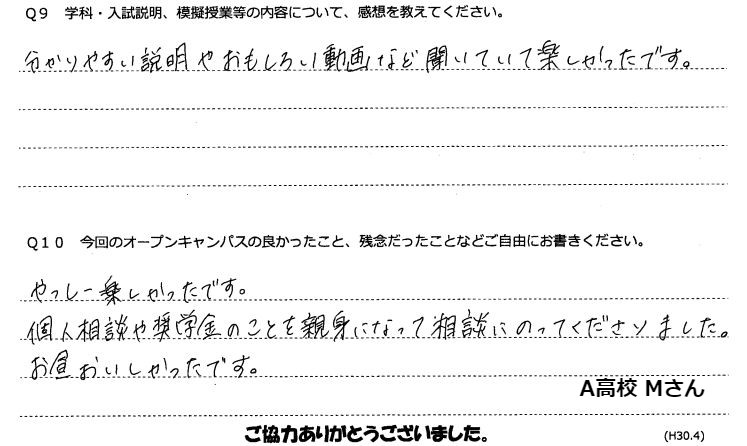 Q9 学科・入試説明、模擬授業等の内容について、感想を教えてください。
分かりやすい説明やおもしろい動画など聞いていて楽しかったです。
Q10 今回のオープンキャンパスの良かったこと、残念だったことなどご自由にお書きください。
やっしー楽しかったです。
個人相談や奨学金のことを親身になって相談にのってくださいました。
お昼おいしかったです。
A高校 Mさん
ご協力ありがとうございました。
(H30.4)